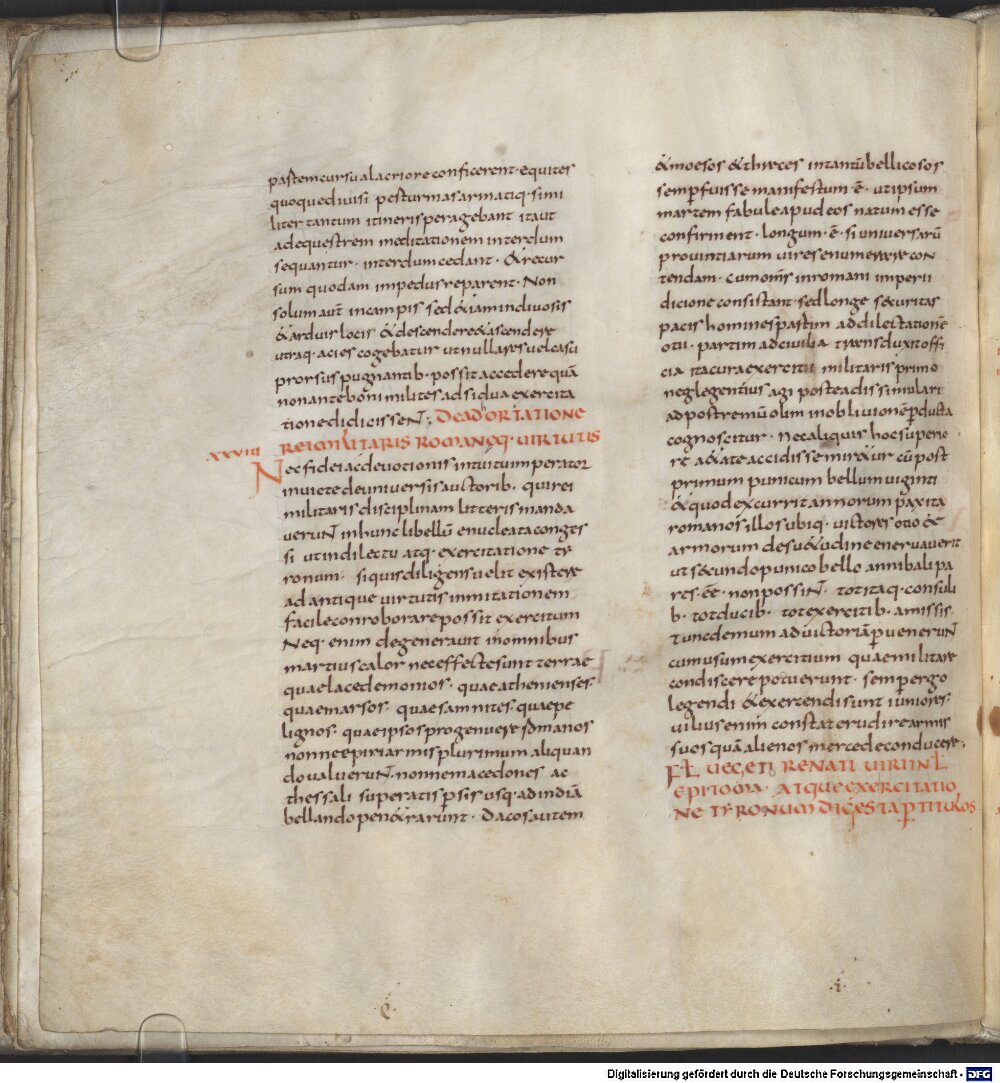 pastem cursu alacriore conficerent · equites
quoque diuisi per turmas armatiq · simi
liter tantum itineris peragebant ita ut
ad equestrem meditationem interdum
sequantur · interdum cedant · & recur
sum quodam impedus reparent · Non
solum aut in campis sed & iam in diuosis
& arduis locis & descendere & ascendere
utraq · acies cogebatur ut nulla res uel casu
prorsus pugnantib · possit accedere quā
non ante boni milites adsidua exercita
tione didicisseN ; DE ADORTATIONE
XXVIII REI MILITARIS ROMANOQ · UIRTUTIS
Nec fidei ac deuotionis intuitu imperator
inuicte de uniuersis auctorib · qui rei
militaris disciplinam litteris manda
veruN in hunc libellū enucleata conges
si ut in dilectu atq · exercitatione ty
ronum · si quis diligens uelit existere
ad antique uirtutis inmitationem
facile conroborare possit exercitum
Neq · enim degenerarunt in omnibus
martius calor nec effecte sunt terrae
quae lacedemonios · quae athenienses ·
quae marsos · quae samnites · quae pe
lignos · quae ipsos progenuere romanos
nonne epiri armis plurimum aliquan
do ualueruN · nonne macedones ac
thessali superatis persis usq · ad indiā
bellando penetrarunt · Dacos autem
& moesos & thraces in tantū bellicosos
semp fuisse manifestum ē · ut ipsum
martem fabule apud eos natum esse
confirment · longum · ē · si uniuersarū
prouintiarum uires enumerare con
tendam · Cum omnis in romani imperii
dicione consistant · sed longe securitas
pacis homines partim ad dilectationē
otii · partim ad ciuilia transduxit offi
cia ita cura exercitii militaris primo
neglegentius agi postea dissimulari
ad postremū olim in obliuione pducta
cognoscitur · nec aliquis hoc superio
re aetate accidisse miretur cū post
primum punicum bellum uiginti
& quod excurrit annorum pax ita
romanos illos ubiq · uictores otio & c
armorum desuetudine eneruauerit
ut secundo punico bello annibali pa
res ee · non possiN · tot itaq · consuli
b · tot ducib · tot exercitib · amissis ·
Tunc demum ad uictoriā pueneruN
cum usum exercitium quae militare
condiscere potuerunt · semp ergo
legendi & exercendi sunt iuniores ·
uilius enim constat erudire armis
suos quā alienos mercede conducere ;
FL UEGETI RENATI UIRI INL
EPITOMA · ATQUE EXERCITATIO
NE TYRONUM DIGESTA P TITULOS
e
· i ·
Digitalisierung gefördert durch die Deutsche Forschungsgemeinschaft - DFG